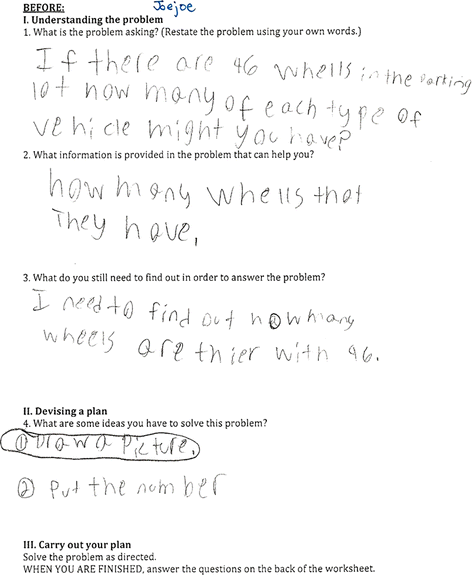 BEFORE: Joejoe
I. Understanding the problem
1. What is the problem asking? (Restate the problem using your own words.)
If there are 96 whells in the parking
lot how many of each type of
vehicle might you have?
2. What information is provided in the problem that can help you?
how many whells that
They have,
3. What do you still need to find out in order to answer the problem?
I need to find out how many
wheels are thier with 96.
II. Devising a plan
4. What are some ideas you have to solve this problem?
① Draw a picture.
② Put the number
III. Carry out your plan
Solve the problem as directed.
WHEN YOU ARE FINISHED, answer the questions on the back of the worksheet.